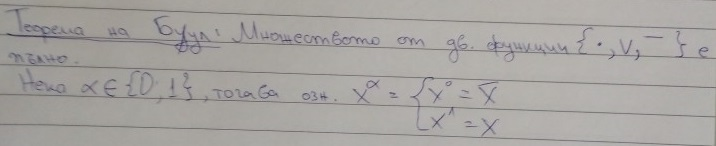 Теорема на Буул: Множеството от дв. функции {·, V, ‾} е
пълно.
Нека α ∈ {0, 1}, тогава озн. x^α = { x⁰ = x̄
x¹ = x